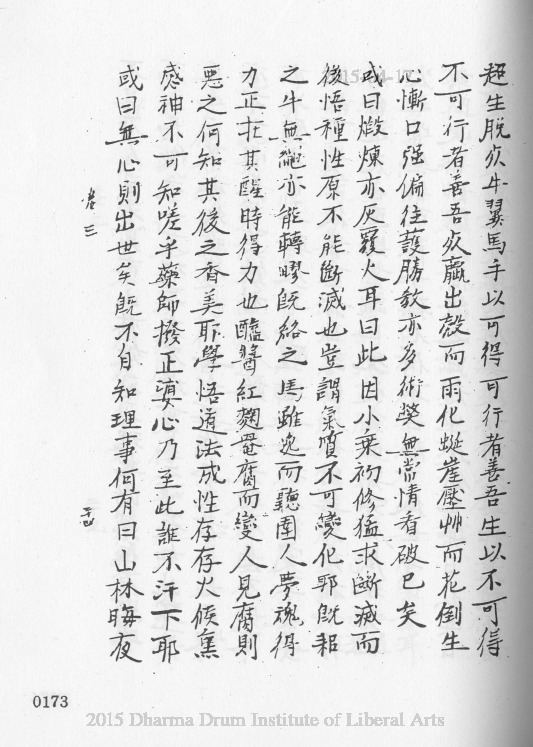 超生脫㽱牛翼馬手以可得可行者善吾生以不可得
不可行者善吾㽱蠃出殼而雨化蜒崖壓艸而花倒生
心慚口强偏往護勝敎亦多術獎無常情看破已矣
或曰煅煉亦灰覆火耳曰此因小乗初修猛求斷滅而
後悟種性原不能斷滅也豈謂氣質不可變化郭旣耜
之牛無繩亦能轉嘐旣絡之馬雖逸而聽圉人夢魂得
力正在其醒時得力也醯醬紅麴罨腐而變人見腐則
惡之何知其後之香美耶學悟道法成性存存火候薰
感神不可知嗟乎藥師撥正婆心乃至此誰不汗下耶
或曰無心則出世矣旣不自知理事何有曰山林晦夜
卷三
十四
0173
2015 Dharma Drum Institute of Liberal Arts